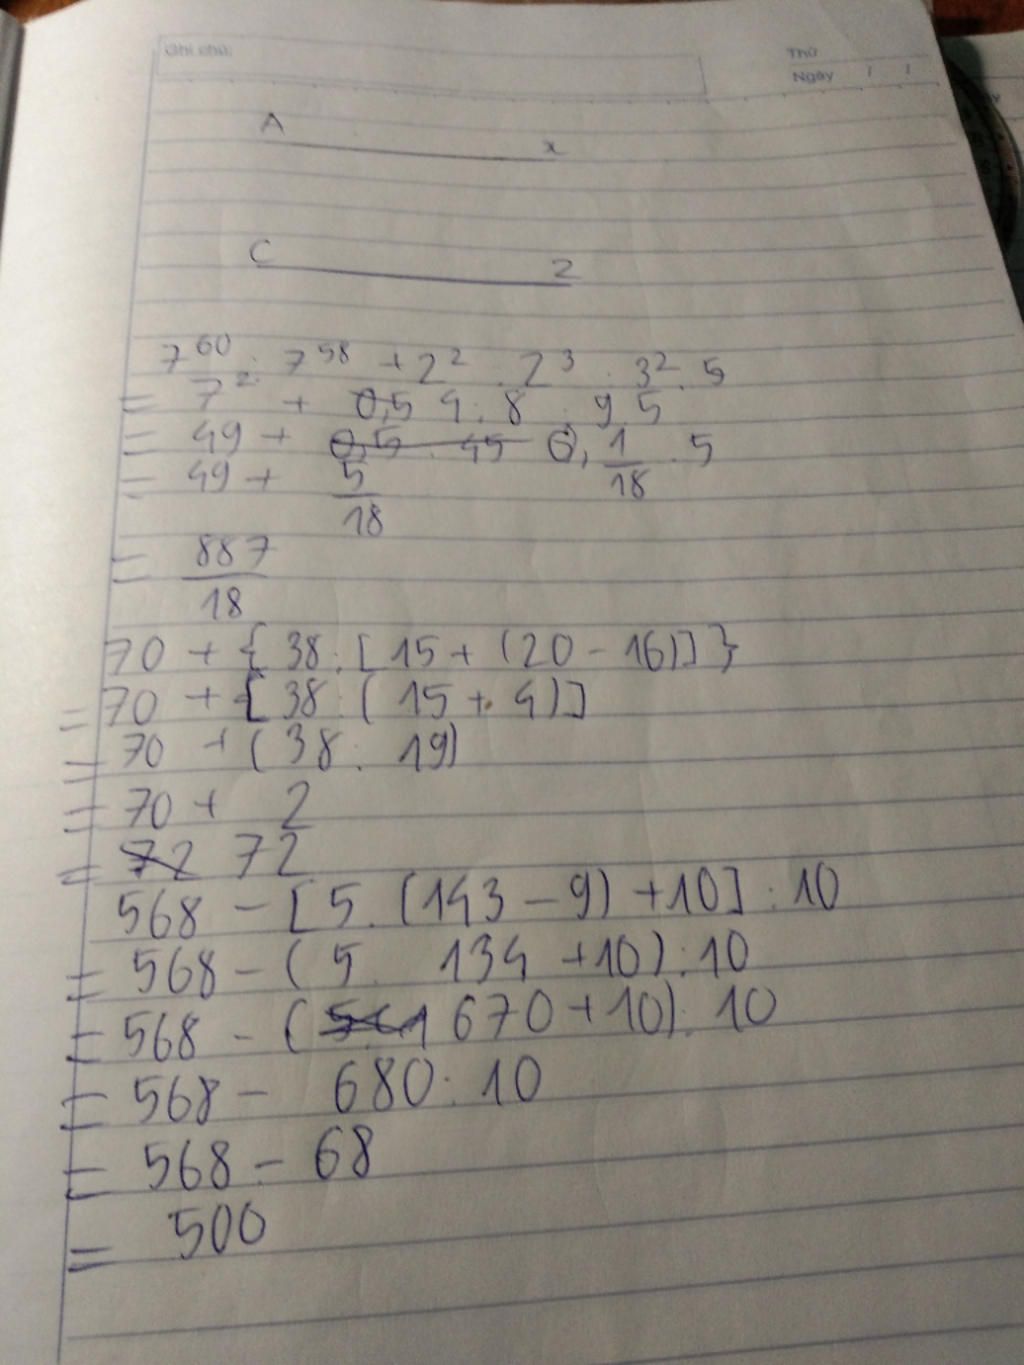 Ghi chú:
Thứ
Ngày / /
A x
C z
7^60 : 7^58 + 2^2 : 2^3 : 3^2 . 5
= 7^2 + 0,5 4 : 8 : 9 . 5
= 49 + 0,5 . 45 0, 1/18 . 5
= 49 + 5/18
= 887/18
70 + { 38 : [ 15 + (20 - 16)] }
= 70 + [ 38 : ( 15 + 4)]
= 70 + ( 38 : 19)
= 70 + 2
= 72 72
568 - [ 5 . (143 - 9) + 10] : 10
= 568 - ( 5 . 134 + 10) : 10
= 568 - ( 670 + 10) : 10
= 568 - 680 : 10
= 568 - 68
= 500